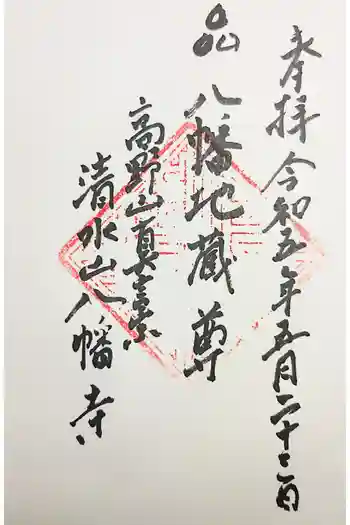 奉拝 令和五年五月二十二日
八幡地蔵尊
高野山真言宗
清水山八幡寺